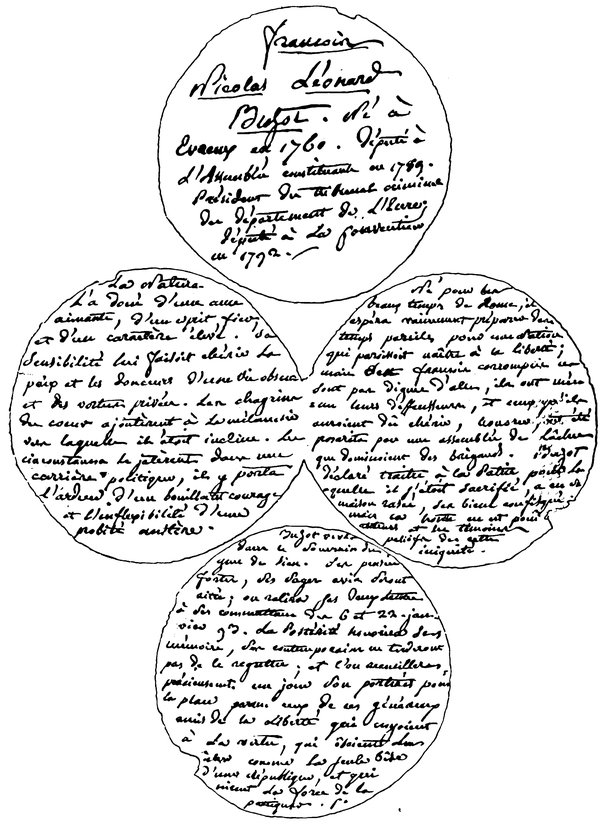 François
Nicolas Léonard
Buzot. Né à
Evreux en 1760. Député à
L'Assemblée constituante en 1789.
Président du tribunal criminel
du département de L'Eure;
député à La Convention
en 1792.
La Nature
L'a doué d'une ame
aimante, d'un esprit fier,
et d'un caractère élevé. Sa
Sensibilité lui faisoit chérir La
paix et les douceurs d'une vie obscure
et des vertus privées. Les chagrins
du coeur ajoutèrent à La mélancolie
vers laquelle il étoit incliné. Les
circonstances le jetèrent dans une
carrière politique, il y porta
L'ardeur d'un bouillant courage
et L'inflexibilité d'une
probité austère.
Né pour les
beaux temps de Rome, il
espéra vainement préparer des
temps pareils pour une Nation
qui paroissoit naître à la liberté;
mais les françois corrompus ne
sont pas dignes d'elle, ils ont
leurs deffenseurs, et ceux qu'ils
auroient dû chérir, honorer, ont été
proscrits par une assemblée de Lâches
que dominoient des brigands. Buzot
déclaré traître à La Patrie pour la
quelle il s'étoit sacrifié, a vu sa
maison rasée, ses biens confisqués;
mais sa
et les témoins
de cette
iniquité.
Buzot vivra
dans le Souvenir des
gens de bien.
fortes, ses sages avis
on relira ses deux lettres
à ses commettans des 6 et 22 jan-
vier 93. La Postérité honorera sa
mémoire, ses contemporains ne tarderont
pas de le regretter; et l'on recueillera
précieusement un jour son portrait pour
le placer parmi ceux de ces généreux
amis de la Liberté qui croyoient
à La vertu, qui osoient
comme La seule base
d'une république, et qui
La force de la
pratiquer.